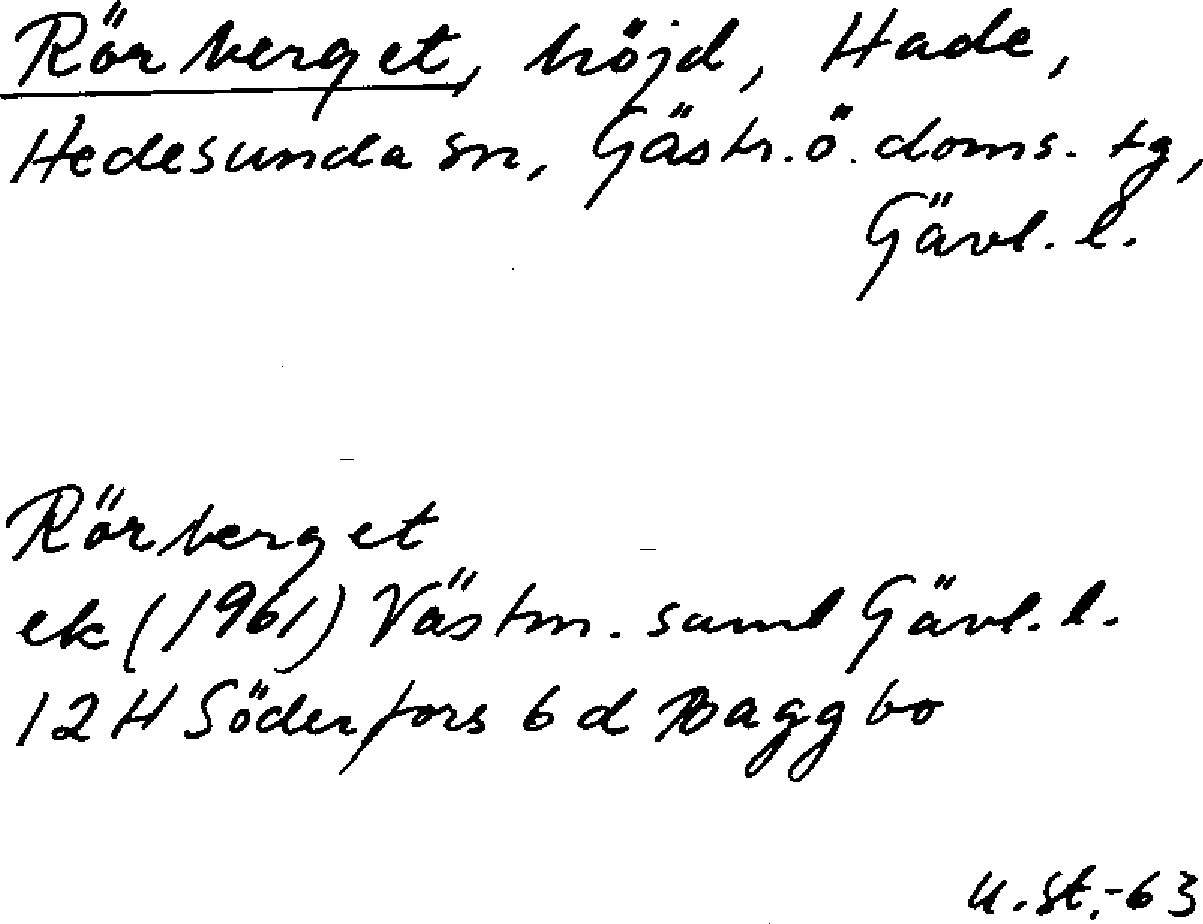 Rörberget, höjd, Hade,
Hedesunda sn, Gästr. ö. doms. tg,
Gävl. l.
Rörberget
ek (1961) Västm. saml Gävl. l.
12H Söderfors 6 d Baggbo
U. St. -63